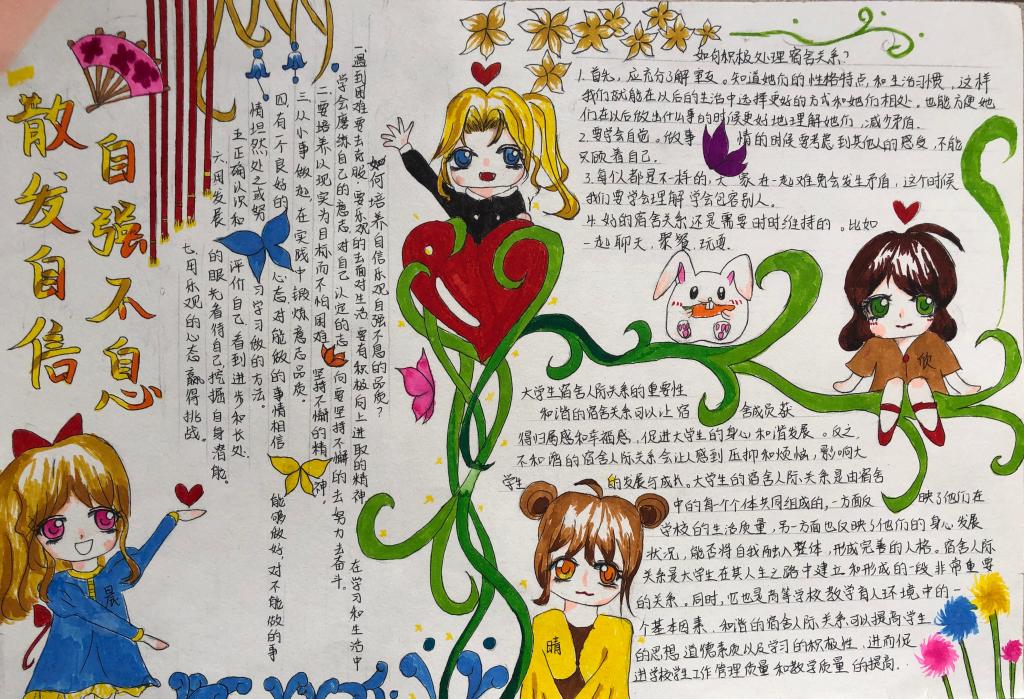 散发自信
自强不息
如何培养自信乐观自强不息的品质？
一.遇到困难要去克服，要乐观的去面对生活，要有积极向上进取的精神
学会磨练自己的意志，对自己认定的志向要坚持不懈的去努力去奋斗。
二.要培养以现实为目标而不怕困难，坚持不懈的精神，在学习和生活中
三.从小事做起，在实践中锻炼意志品质。
四.有个良好的心态，对能做的事情相信能够做好，对不能做的事
情坦然处之或努习学习做的方法。
五.正确认识和评价自己，看到进步和长处
六.用发展的眼光看待自己，挖掘自身潜能。
七.用乐观的心态，赢得挑战。
如何积极处理宿舍关系？
1.首先，应充分了解室友。知道她们的性格特点和生活习惯，这样
我们就能在以后的生活中选择更好的方式和她们相处。也能方便她
们在以后做出什么事的时候更好地理解她们，减少矛盾.
2.要学会自觉。做事情的时候要考虑到其他人的感受，不能
只顾着自己.
3.每个人都是不一样的，大家在一起难免会发生矛盾，这个时候
我们要学会理解学会包容别人。
4.好的宿舍关系还是需要时时维持的。比如
一起聊天，聚餐，玩耍.
欣
大学生宿舍人际关系的重要性
和谐的宿舍关系可以让宿舍成员获
得归属感和幸福感，促进大学生的身心和谐发展。反之，
不和谐的宿舍人际关系会让人感到压抑和烦恼，影响大
学生的发展与成长。大学生的宿舍人际关系是由宿舍
中的每个个体共同组成的，一方面反映了他们在
学校的生活质量，另一方面也反映了他们的身心发展
状况，能否将自我融入整体，形成完善的人格。宿舍人际
关系是大学生在其人生之路中建立和形成的一段非常重要
的关系。同时，它也是高等学校教学育人环境中的一
个基本因素，和谐的宿舍人际关系可以提高学生
的思想道德素质以及学习的积极性，进而促
进学校学生工作管理质量和教学质量的提高.
晨
晴